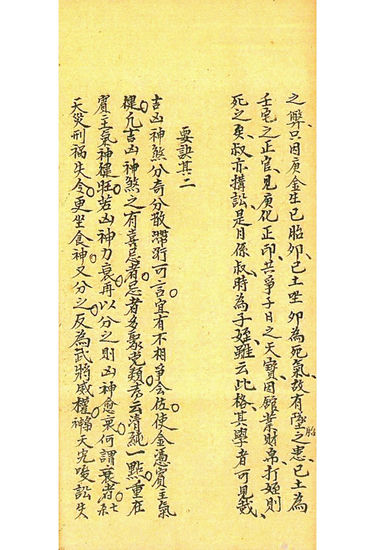 之弊只因庚金生巳胎卯己土坐卯為死氣故有墜胎之患己土為
壬宅之正官見庚化正印共爭子日之天寶因館業財帛打姪則
死之矣叔亦搆訟是月係叔時為子姪雖云此格其學者可見哉
要訣其二
吉凶神煞分有分散滯行可言宜有不相爭會佐使全憑賓主氣
健凡吉凶神煞之有喜忌者忌者多聚 類 云清純一點重在
賓主氣神健旺若凶神力衰再以分之則凶神愈衰何謂衰者 七
天災刑福失令更坐食神又分之反為武將威權 神天 唆訟失